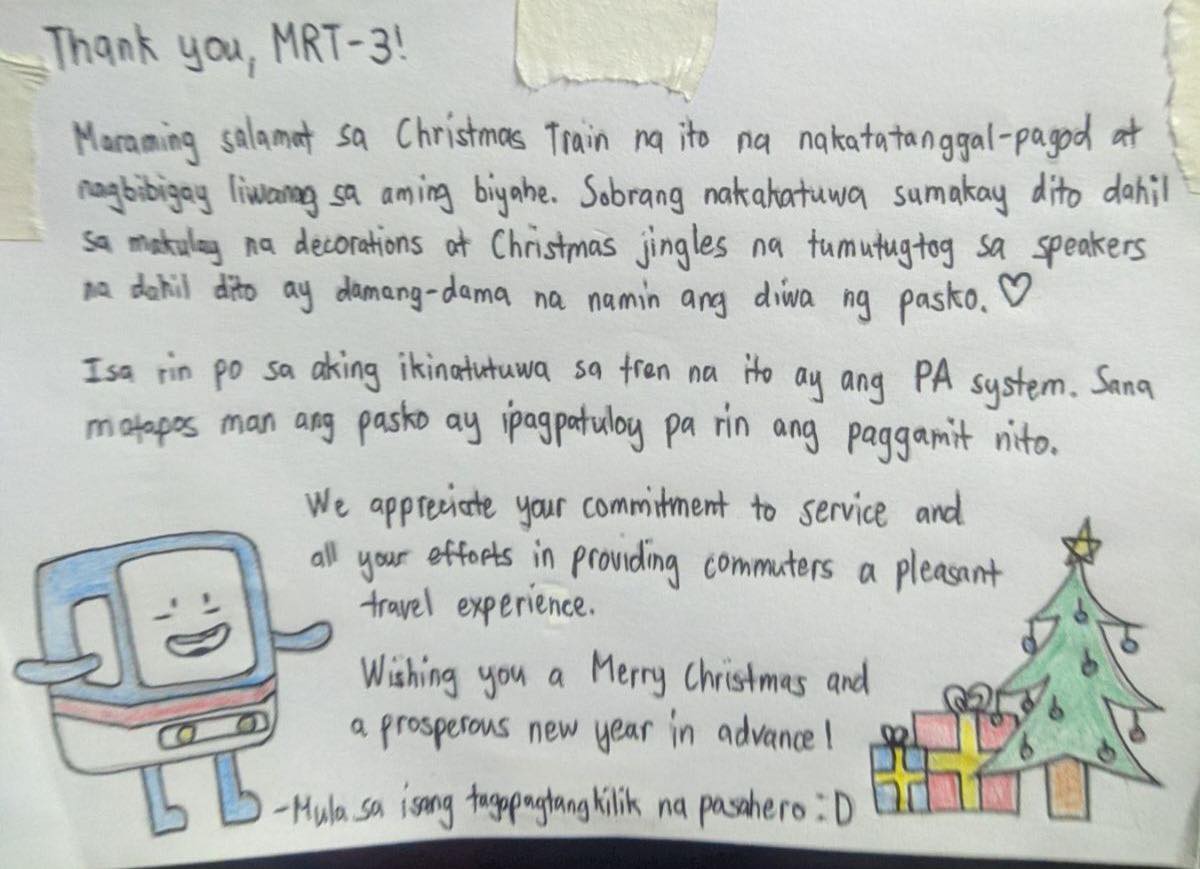 Thank you, MRT-3!
Maraming salamat sa Christmas Train na ito na nakatatanggal-pagod at
nagbibigay liwanag sa aming biyahe. Sobrang nakakatuwa sumakay dito dahil
sa makulay na decorations at Christmas jingles na tumutugtog sa speakers
na dahil dito ay damang-dama na namin ang diwa ng pasko. ♡
Isa rin po sa aking ikinatutuwa sa tren na ito ay ang PA system. Sana
matapos man ang pasko ay ipagpatuloy pa rin ang paggamit nito.
We appreciate your commitment to service and
all your efforts in providing commuters a pleasant
travel experience.
Wishing you a Merry Christmas and
a prosperous new year in advance!
-Mula sa isang tagapagtangkilik na pasahero :D